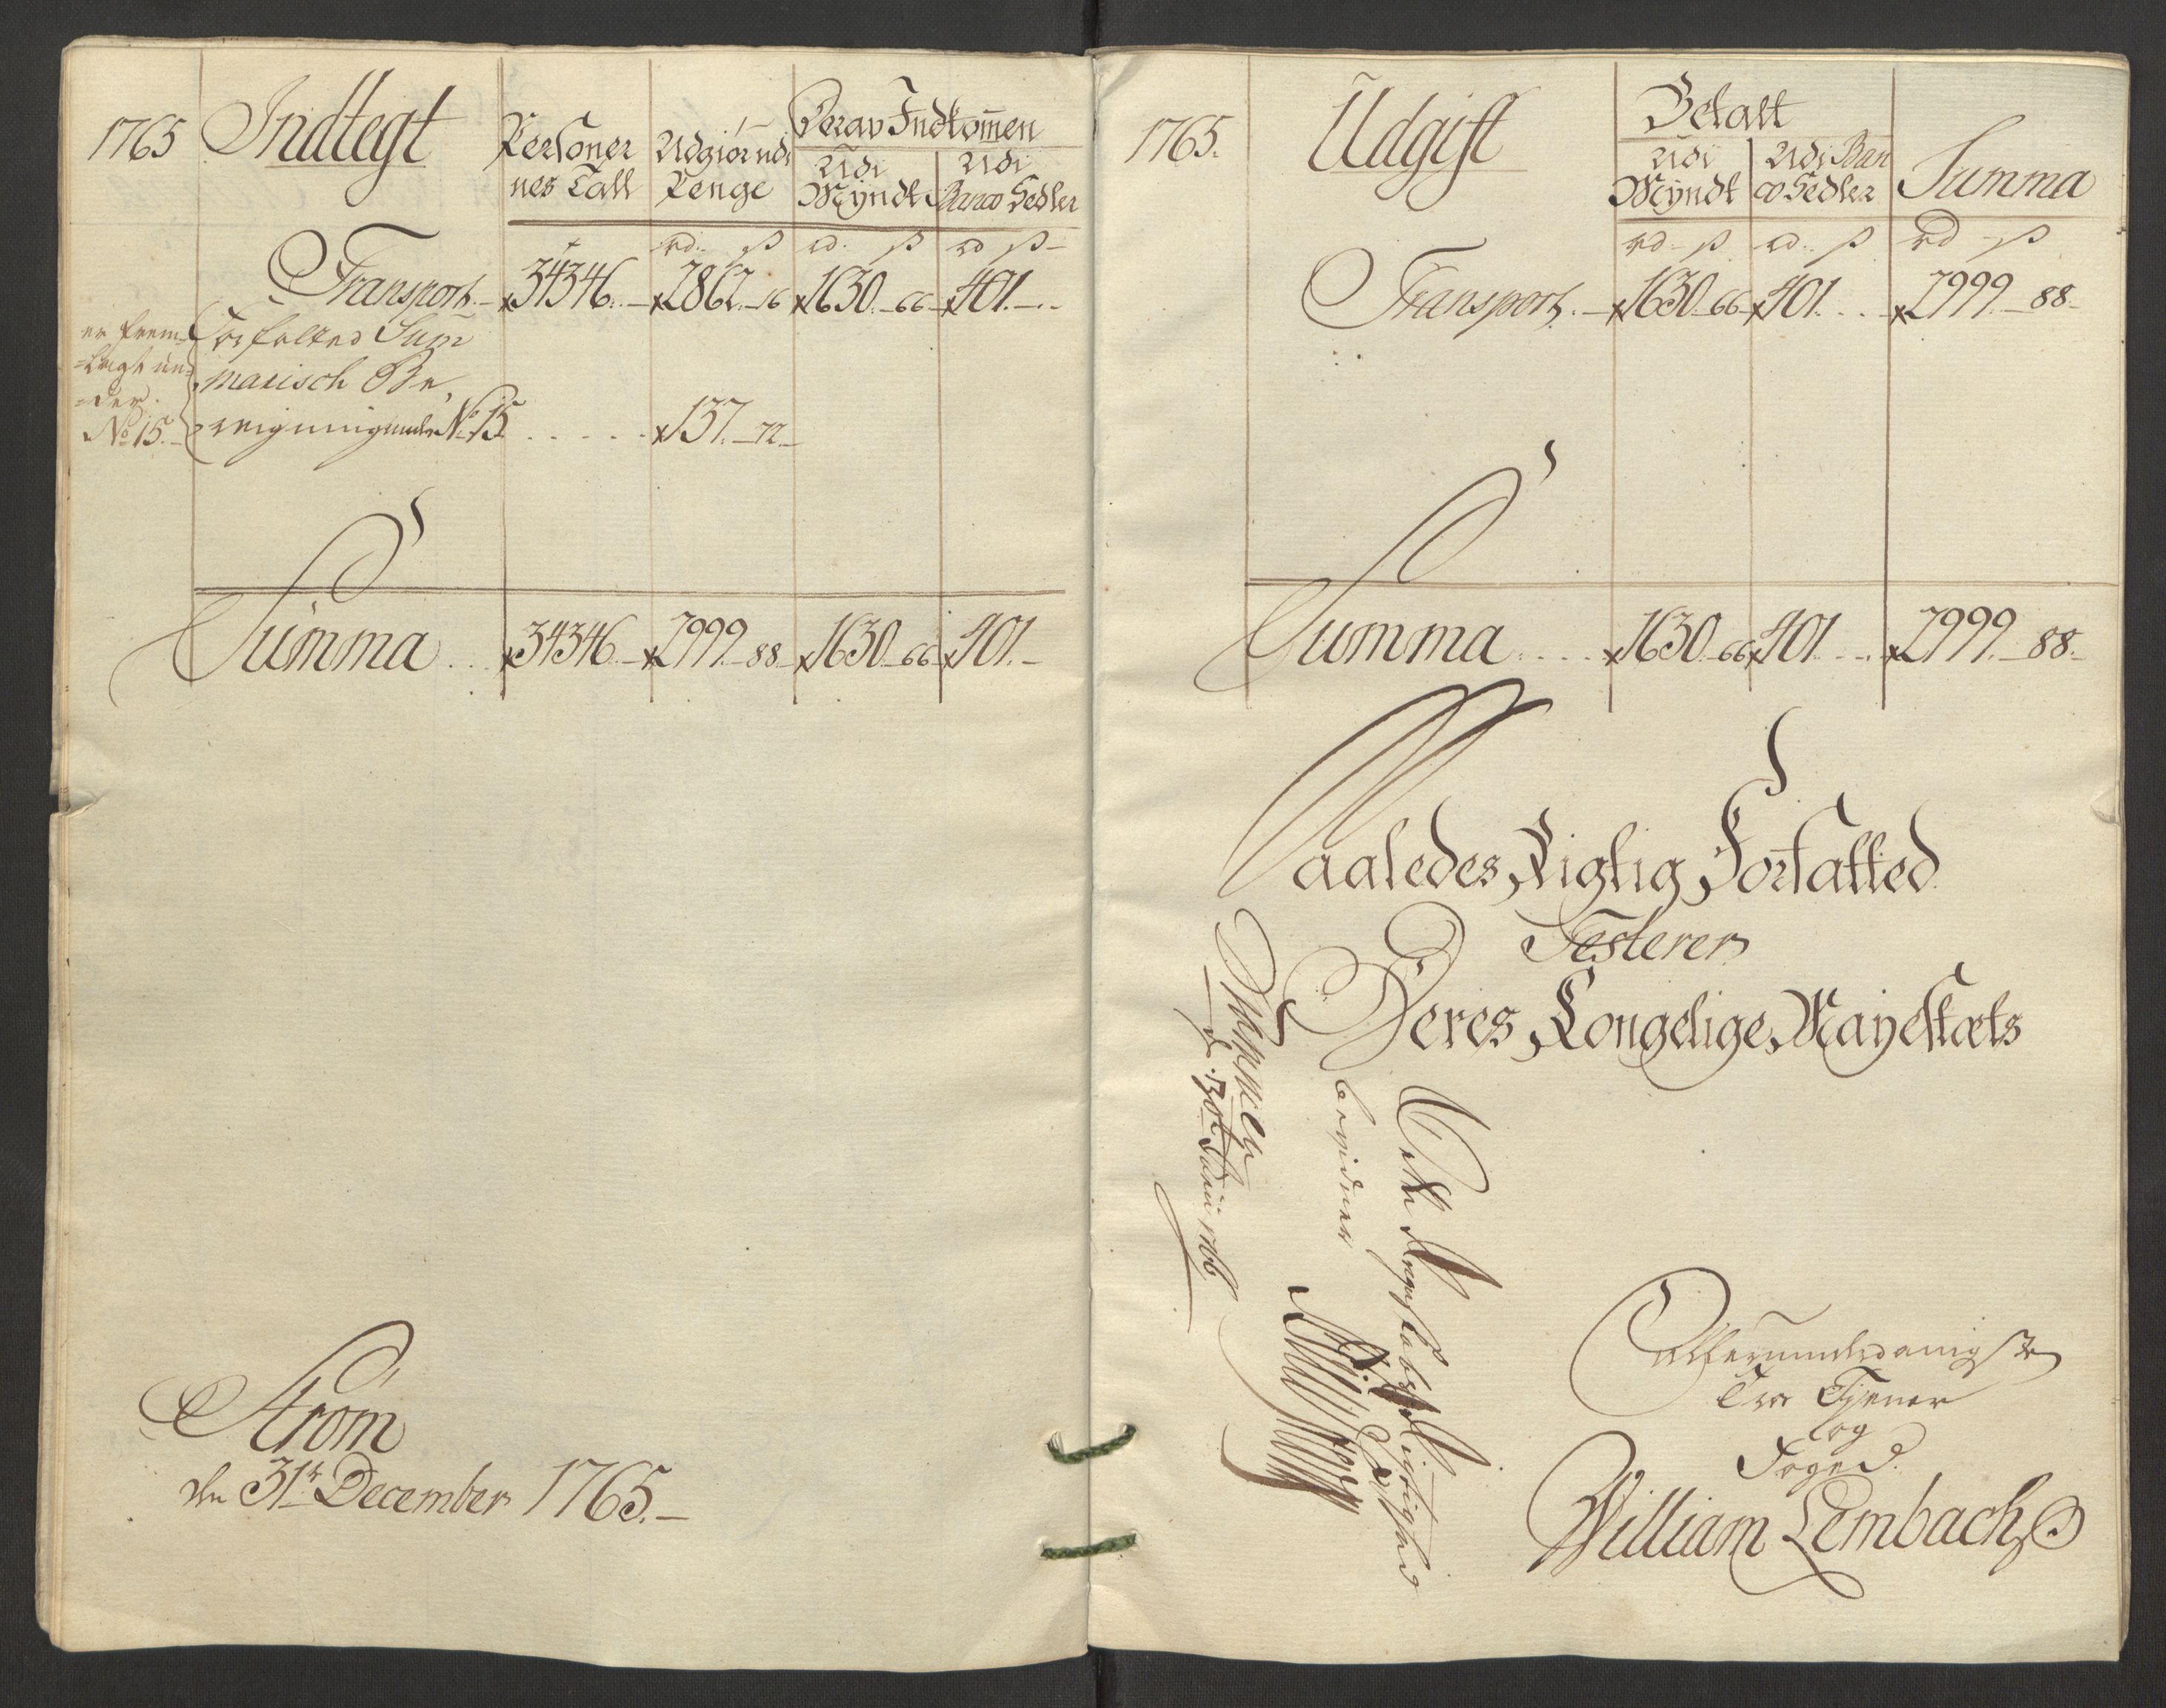 1765 Indtegt
Personer
nes Tall
Udgiørende
Penge
Derav Indkom̅en
Udi
Myndt
Udi
Banco Sedler
rd. ß rd. ß rd ß
Transport. 34346. 2862. 16 1630. 66 401.
er frem-
-lagt un-
-der.
No 15.
Forfatted Sum
marisch Be,
reigning under No 15. 137. 72.
Summa 34346 2999. 88 1630. 66 401.
Strøm
den 31te December 1765.
1765. Udgift
Betalt
Udi
Myndt
Udi Ban
co Sedler
Summa
rd ß rd. ß rd ß
Transport. 1630. 66 401. 2999. 88.
Summa 1630. 66 401. 2999. 88.
Saaledes Rigtig Forfatted
Testerer
Deres Kongelige Mayestæts
Allerunderdanigste
Troe Tjener
og
Foged.
William Lembach
Dette Regnskabs Rigtighed
bevidner
d. 30te Junii 1766